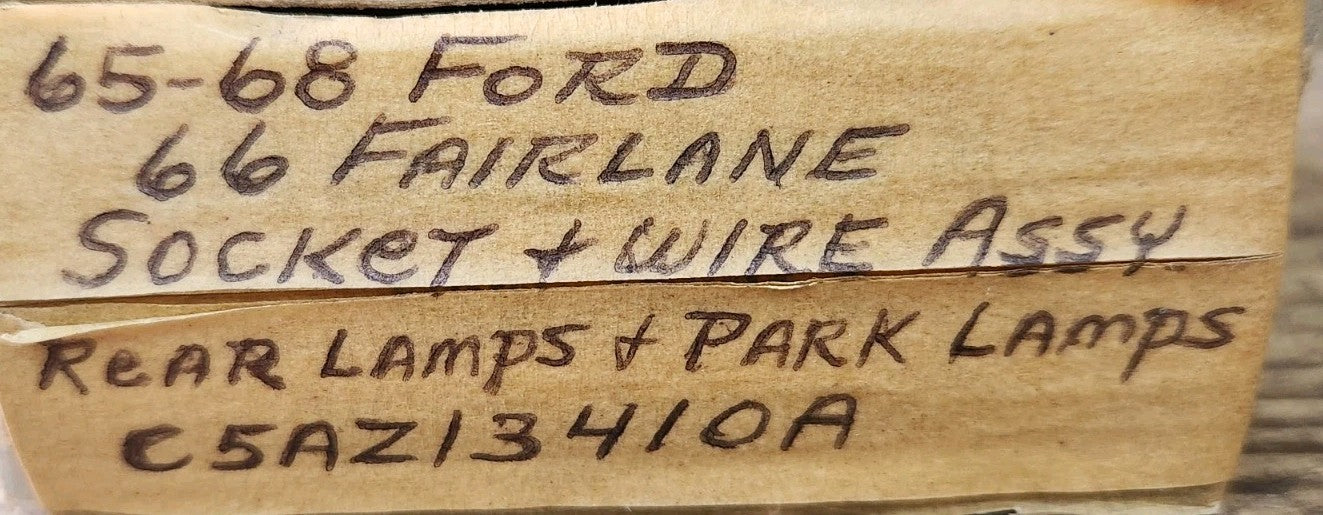 65-68 FORD
66 FAIRLANE
SOCKeT + WIRE ASSY.
ReAR LAmpS + PARK LAmpS
C5AZ13410A